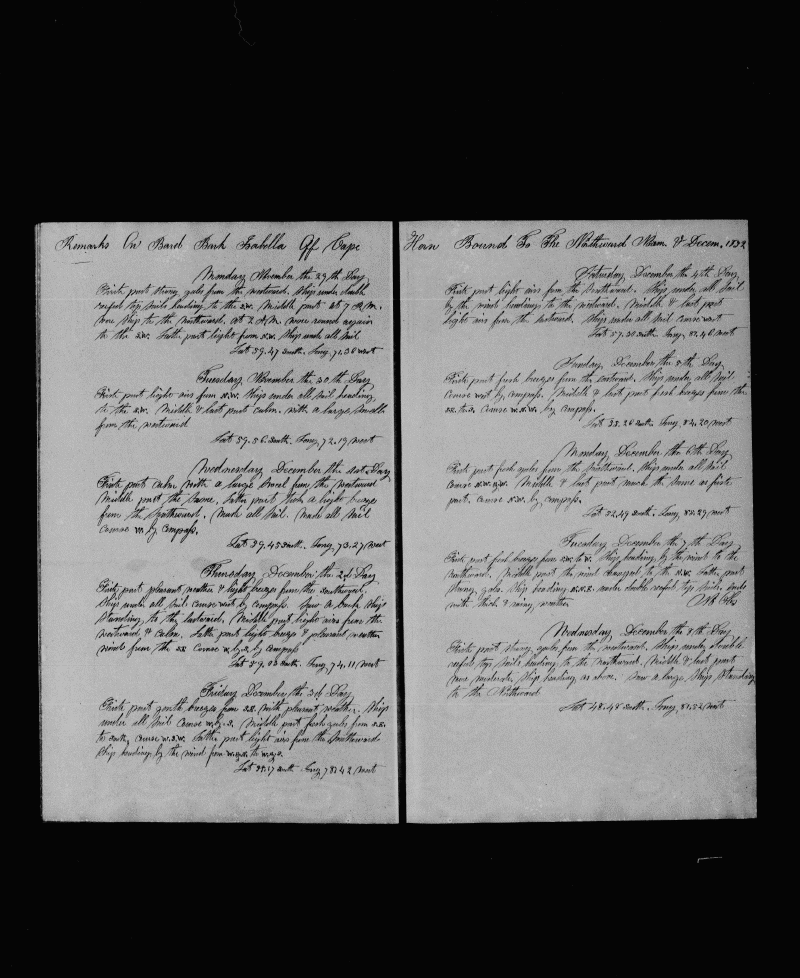 Remarks On Board Bark Isabella Off Cape
Monday November the 29th Day
First part strong gales from the westward. Ship under double
reefed top sails heading to the S.W. Middle part at 7 P.M.
wore ship to the northward. at 2 A.M. wore round again
to the S.W. Latter part light from N.W. Ship under all sail
Lat 59.47 South. Long 71.30 West
Tuesday November the 30th Day
First part light airs from N.W. Ship under all sail heading
to the S.W. Middle & last part calm. with a large swell
from the westward
Lat 59.56 South. Long 72.19 West
Wednesday December the 1st Day
First part calm with a large swell from the westward
Middle part the same. Latter part took a light breeze
from the Southward. Made all sail. Made all sail
course W. by compass.
Lat 59.45 South. Long 73.27 West
Thursday December the 2d Day
First part pleasant weather & light breezes from the southward.
Ship under all sail course west by compass. Saw a bark Ship
standing to the eastward. Middle part light airs from the
westward & calm. Latter part light breeze & pleasant weather
winds from the course by compass
Lat 59.03 South. Long 74.11 West
Friday December the 3d Day
First part gentle breezes from S.E. with pleasant weather. Ship
under all sail course W. by S. Middle part fresh gales from S.E.
to South, course W.S.W. Latter part light airs from the Southward
Ship heading by the wind from to
Lat 58.17 South Long 78.42 West
Horn Bound To The Northward Decem. 1852
Saturday December the 4th Day
First part light airs from the Southward. Ship under all sail
by the wind heading to the westward. Middle & last part
light airs from the westward. Ship under all sail course west
Lat 57.30 South Long 81.46 West
Sunday, December the 5th Day
First part fresh breezes from the eastward. Ship under all sail
course west by compass. Middle & last part fresh breezes from the
course W.N.W. by compass.
Lat 55.26 South Long 84.20 West
Monday December the 6th Day
First part fresh gales from the Southward. Ship under all sail
course Middle & last part much the same as first
part. course N.W. by compass.
Lat 52.49 South. Long 82.29 West
Tuesday December the 7th Day
First part fresh breezes from S.W. to W. Ship heading by the wind to the
northward. Middle part the wind changed to the N.W. Latter part
strong gales. Ship heading under double reefed top sails. Ends
with thick & rainy weather No Obs
Wednesday, December the 8th Day
First part strong gales from the westward. Ship under double
reefed top sails heading to the northward. Middle & last part
more moderate Ship heading as above. Saw a large Ship Standing
to the Northward
Lat 48.48 South. Long 81.52 West